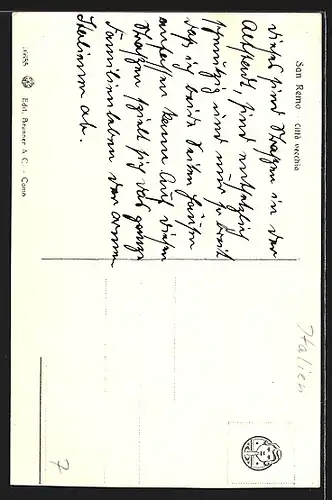 San Remo - Città vecchia
Dieses sind Straßen in der
Altstadt, sind entsetzlich
schmutzig und nur so breit
daß ich beide Seiten Häuser
anfassen kann. Auf diesen
Straßen spielt sich das ganze
Familienleben der armen
Italiener ab.
Edit. Brunner & C. - Como
Italien
7